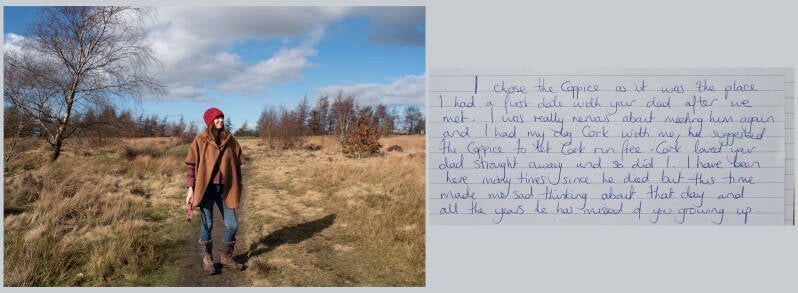 I chose the Coppice as it was the place
I had a first date with your dad after we
met. I was really nervous about meeting him again
and I had my dog Cork with me, he suggested
the Coppice to let Cork run free. Cork loved your
dad straight away and so did I. I have been
here many times since he died but this time
made me sad thinking about that day and
all the years he has missed of you growing up.